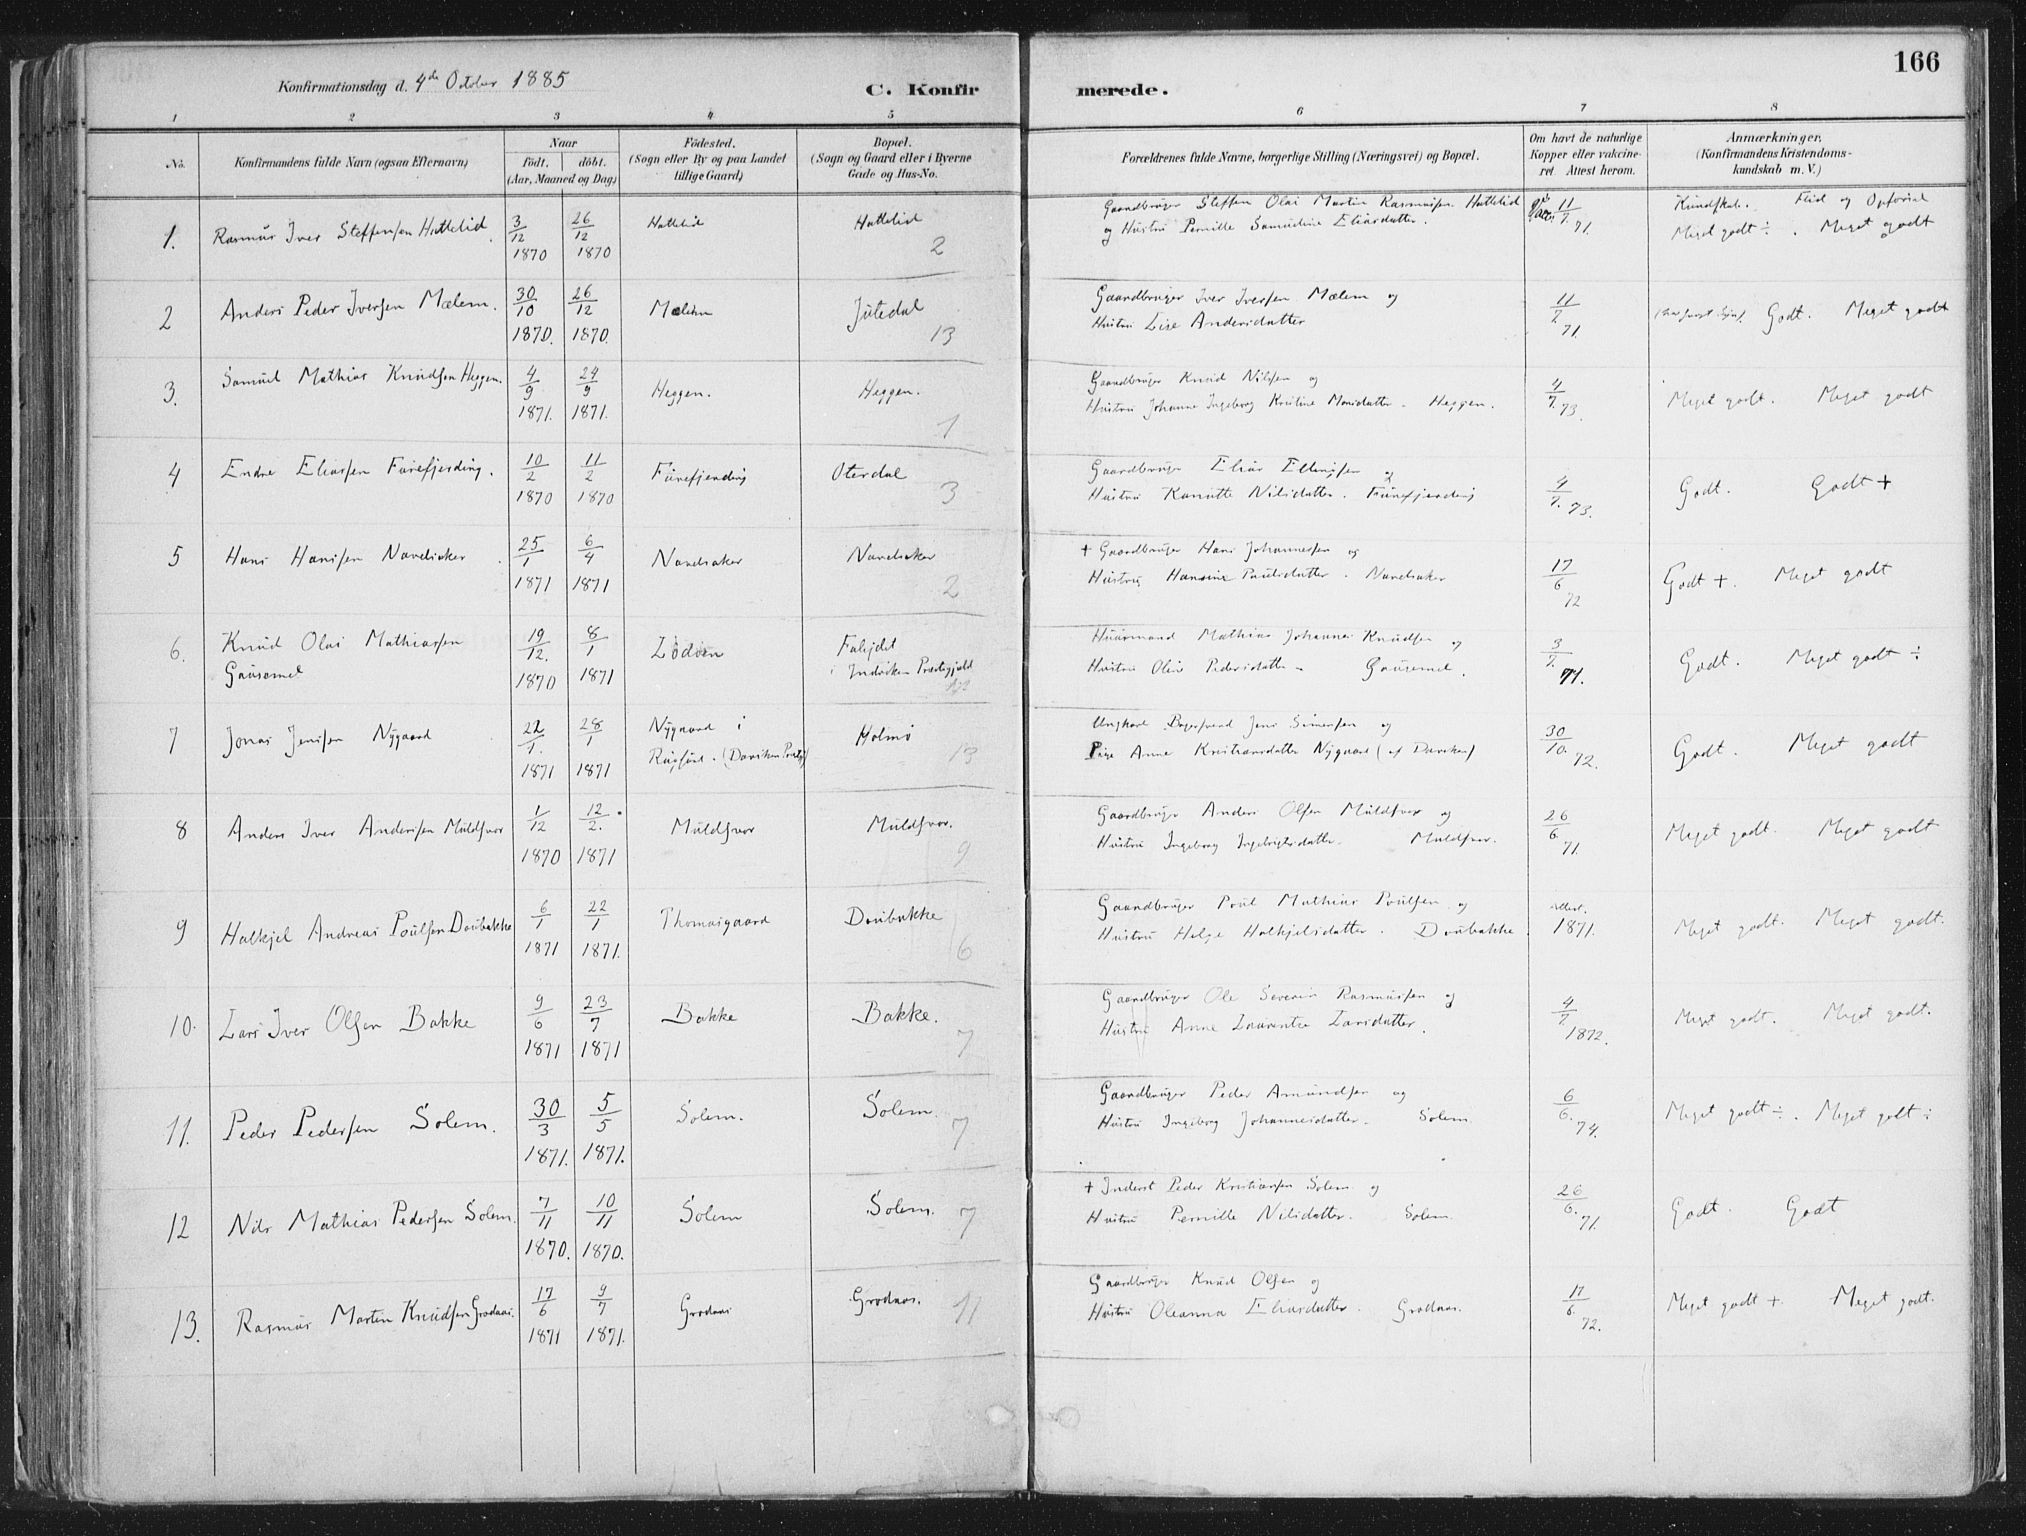 166
Konfirmationsdag d. 4de October 1885
C. Konfirmerede.
1 2 3 4 5 6 7 8
No. Konfirmandens fulde Navn (ogsaa Efternavn) Naar födt. döbt. (Aar, Maaned og Dag) Födested. (Sogn eller By og paa Landet tillige Gaard) Bopæl. (Sogn og Gaard eller i Byerne Gade og Hus-No. Forældrenes fulde Navne, borgerlige Stilling (Næringsvei) og Bopæl. Om havt de naturlige Kopper eller vakcineret. Attest herom. Anmærkninger. (Konfirmandens Kristendomskundskab m. V.)
Kundskab. Flid og Opførsel
1. Rasmus Iver Steffensen Hattelid 3/12 1870 26/12 1870 Hattelid Hattelid 2 Gaardbruger Steffen Olai Martin Rasmussen Hattelid
og Hustru Pernille Samueline Eliasdatter. 11/7 71. Meget godt ÷. Meget godt
2 Anders Peder Iversen Mælem. 30/10 1870. 26/12 1870. Mælem Jutedal 13 Gaardbruger Iver Iversen Mælem og
Hustru Lise Andersdatter 11/7 71. Godt. Meget godt
3. Samuel Mathias Knudsen Heggen. 4/9 1871. 24/9 1871. Heggen. Heggen. 1 Gaardbruger Knud Nilssen og
Hustru Johanne Ingeborg Kristine Monsdatter. Heggen. 4/7. 73. Meget godt. Meget godt
4 Endre Eliassen Furefjerding. 10/2 1870 11/2 1870 Furefjerding Oterdal 3 Gaardbruger Elias Ellingsen og
Hustru Kanutte Nilsdatter. Furefjerding 4/7. 73. Godt. Godt +
5 Hans Hansen Navelsaker 25/1 1871 6/4 1871 Navelsaker Navelsaker 2 + Gaardbruger Hans Johannessen og
Hustru Hansine Paulsdatter. Navelsaker 17/6 72 Godt +. Meget godt
6. Knud Olai Mathiassen
Gausemel 19/12. 1870 8/1 1871 Lødøen Faleidet
i Indviken Præstegjeld Huusmand Mathias Johannes Knudsen og
Hustru Oline Pedersdatter Gausemel. 3/7. 71. Godt. Meget godt ÷
7 Jonas Jensen Nygaard 22/1. 1871 28/1 1871 Nygaard i
Rugsund. (Daviken Præstgj) Holmø 13 Ungkarl Jens Simensen og
Pige Anne Kristiansdatter Nygaard (af Daviken) 30/10. 72. Godt. Meget godt
8 Anders Iver Andersen Muldsvor 1/12 1870 12/2. 1871 Muldsvor Muldsvor. 9 Gaardbruger Anders Olsen Muldsvor og
Hustru Ingeborg Ingebrigtsdatter. Muldsvor. 26/6 71. Meget godt. Meget godt
9 Halkjel Andreas Poulsen Doubakke 6/1 1871 22/1 1871. Thomasgaard Doubakke 6 Gaardbruger Poul Mathias Poulsen og
Hustru Helge Halkjelsdatter. Doubakke Attest. 1871. Meget godt. Meget godt.
10. Lars Iver Olsen Bakke 9/6 1871 23/7 1871 Bakke Bakke. 7 Gaardbruger Ole Severin Rasmussen og
Hustru Anne Laurentse Larsdatter. 4/7. 1872. Meget godt. Meget godt.
11. Peder Pedersen Solem. 30/3 1871. 5/5 1871. Solem. Solem. 7 Gaardbruger Peder Amundsen og
Hustru Ingeborg Johannesdatter. Solem 6/6. 74. Meget godt ÷. Meget godt ÷
12 Nils Mathias Pedersen Solem. 7/11 1870. 10/11 1870. Solem Solem. 7 + Inderst Peder Kristiansen Solem og
Hustru Pernille Nilsdatter. Solem. 26/6. 71. Godt. Godt
13. Rasmus Martin Knudsen Grodaas. 17/6 1871 9/7 1871. Grodaas Grodaas. 11 Gaardbruger Knud Olsen og
Hustru Oleanna Eliasdatter. Grodaas. 17/6. 72. Meget godt +. Meget godt.